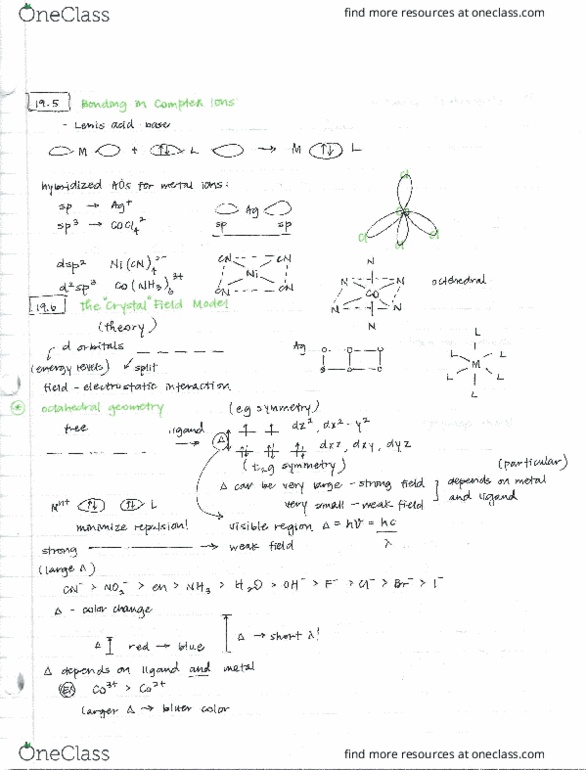 OneClass
find more resources at oneclass.com
19.5 Bonding in Complex Ions
- Lewis acid base
M + ↑↓ L → M ↑↓ L
hybridized AOs for metal ions:
sp → Ag+
sp3 → COCl4 2-
Ag
sp sp
Cl
Cl Cl Cl
dsp2 Ni(CN)4 2-
d2sp3 Co(NH3)6 3+
CN CN
Ni
CN CN
N
N N
CO
N N
N
octahedral
19.6 The "Crystal" Field Model
(theory)
d orbitals
(energy levels) split
field - electrostatic interaction
Ag
L
L L
M
L L
L
octahedral geometry
(eg symmetry)
free
ligand
Δ
dz2, dx2-y2
dxz, dxy, dyz
(t2g symmetry)
Δ can be very large - strong field
very small - weak field
depends on metal (particular)
and ligand
Mn+ ↑↓ ↑↓ L
minimize repulsion!
visible region Δ = hν = hc
λ
strong → weak field
(large Δ)
CN- > NO2- > en > NH3 > H2O > OH- > F- > Cl- > Br- > I-
Δ - color change
Δ red → blue
Δ → short λ!
Δ depends on ligand and metal
EX Co3+ > Co2+
larger Δ → bluer color
OneClass
find more resources at oneclass.com